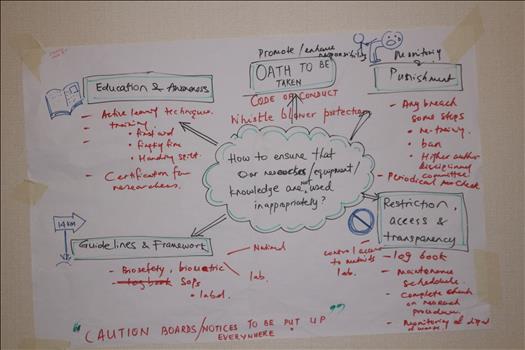 Education & Awareness
- Active learning techniques.
- training
• first aid
• Fighting fire
• Handling spill.
- Certification for
researchers.
Promote/enhance
responsibility
OATH TO BE
TAKEN
CODE OF CONDUCT
Whistle blower protection
Monitoring
Punishment
- Any breach
some steps
• re-training.
• ban
• Higher author
disciplinary
committee
- Periodical
How to ensure that
Our /equipment/
knowledge are not used
inappropriately?
14 KM
Guidelines & Framework
National
lab.
- Biosafety, biometric
- log book SOPs
• label.
control access
to
lab.
Restriction,
access &
transparency
- log book
- maintenance
schedule.
- Complete check
on research
procedures.
- Monitoring of
"CAUTION BOARDS/NOTICES TO BE PUT UP
EVERYWHERE"